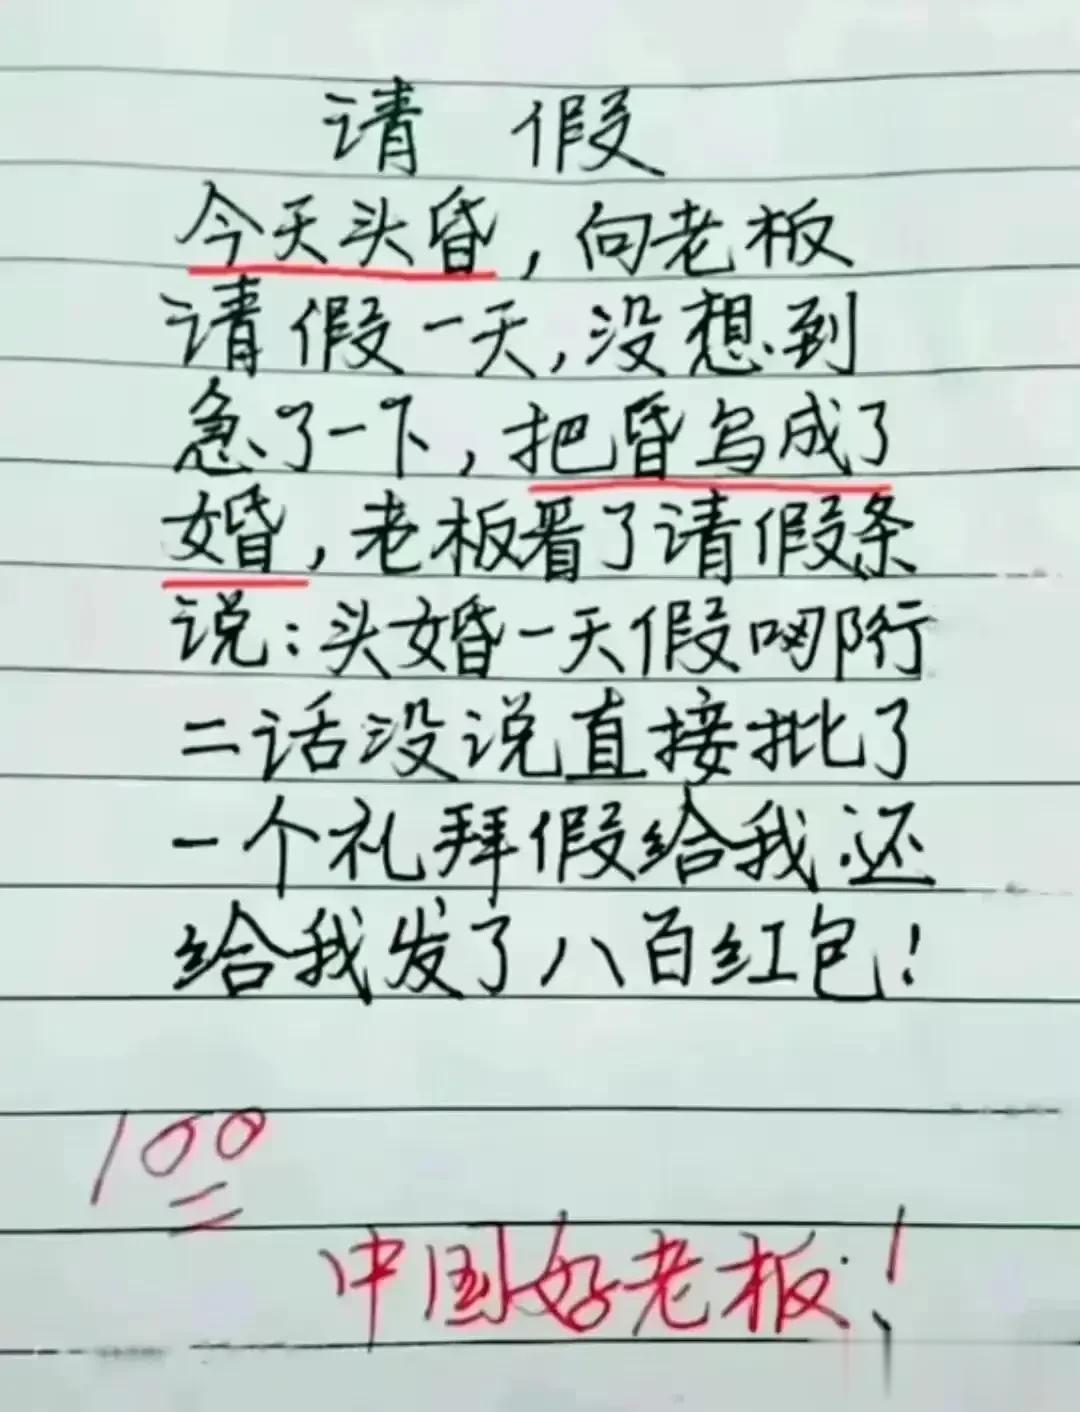 请 假
今天头昏，向老板
请假一天，没想到
急了一下，把昏写成了
婚，老板看了请假条
说：头婚一天假哪行
二话没说直接批了
一个礼拜假给我还
给我发了八百红包！
100
中国好老板！